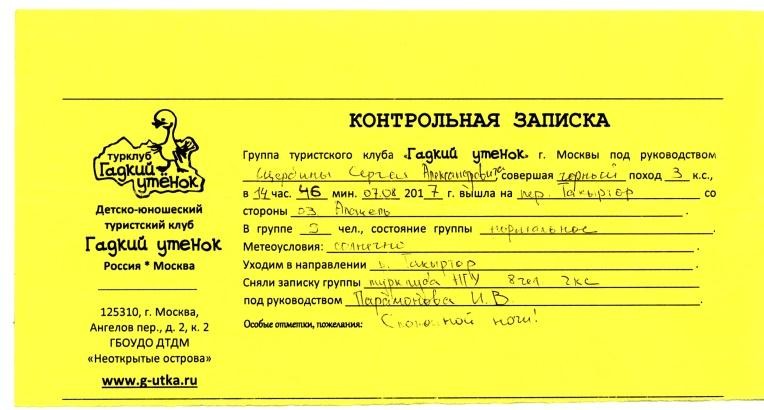 турклуб
Гадкий
утёнок
Детско-юношеский
туристский клуб
Гадкий утенок
Россия * Москва
125310, г. Москва,
Ангелов пер., д. 2, к. 2
ГБОУДО ДТДМ
«Неоткрытые острова»
www.g-utka.ru
КОНТРОЛЬНАЯ ЗАПИСКА
Группа туристского клуба «Гадкий утенок» г. Москвы под руководством
Щербины Сергея Александровича совершая горный поход 3 к.с.,
в 14 час. 46 мин. 07.08 2017 г. вышла на пер. Такыртор со
стороны оз.
В группе 9 чел., состояние группы нормальное
Метеоусловия: солнечно
Уходим в направлении Такыртор
Сняли записку группы турклуба НГУ 8 чел 2 кс
под руководством Парамонова И.В.
Особые отметки, пожелания: Спокойной ночи!